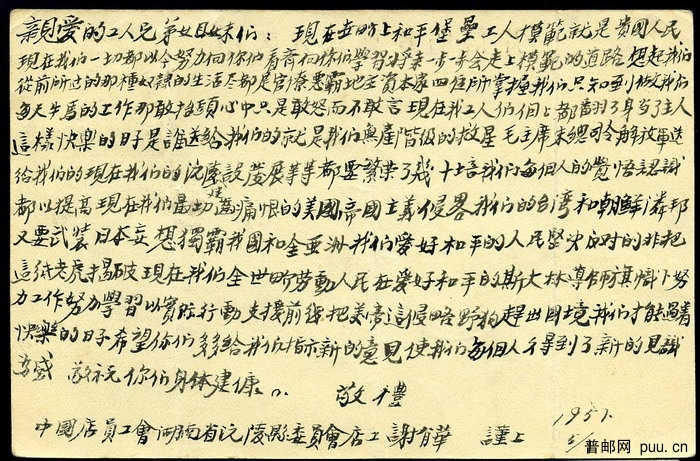 親愛的工人兄弟姐妹们： 現在世界上和平堡壘工人模範就是貴國人民
現在我们一切都以今努力向你们看齊向你们學習將来一步一步会走上模範的道路 想起我们
從前所过的那種奴隸的生活尽都是官僚悪霸地主資本家四位所掌握我们只知到做我们
每天牛馬的工作那敢抬頭心中只是敢怒而不敢言 現在我工人们個上都翻了身当了主人
這樣快樂的日子是誰送給我们的就是我们無產階级的救星 毛主席朱總司令解放軍送
给我们的現在我们的沅陵設發展等等都要繁荣了幾十倍我们每個人的覺悟認識
都以提高現在我们最切齒痛恨的美國帝國主義侵畧我们的台湾和朝鮮鄰邦
又要武装日本妄想獨霸我國和全亜洲我们爱好和平的人民堅决反对的非把
這紙老虎揭破 現在我们全世界劳動人民在爱好和平的斯大林導师旗幟下努
力工作努力學習以實际行動支援前线把美帝這侵略野狗趕出国境我们才能過着
快樂的日子希望你们多多給我们指示新的意見使我们每個人得到了新的見識
为感 敬祝你们身体建康
敬禮
中國店員工會湖南省沅陵縣委員會店工 謝有華 謹上
1951.
普邮网 puu.cn